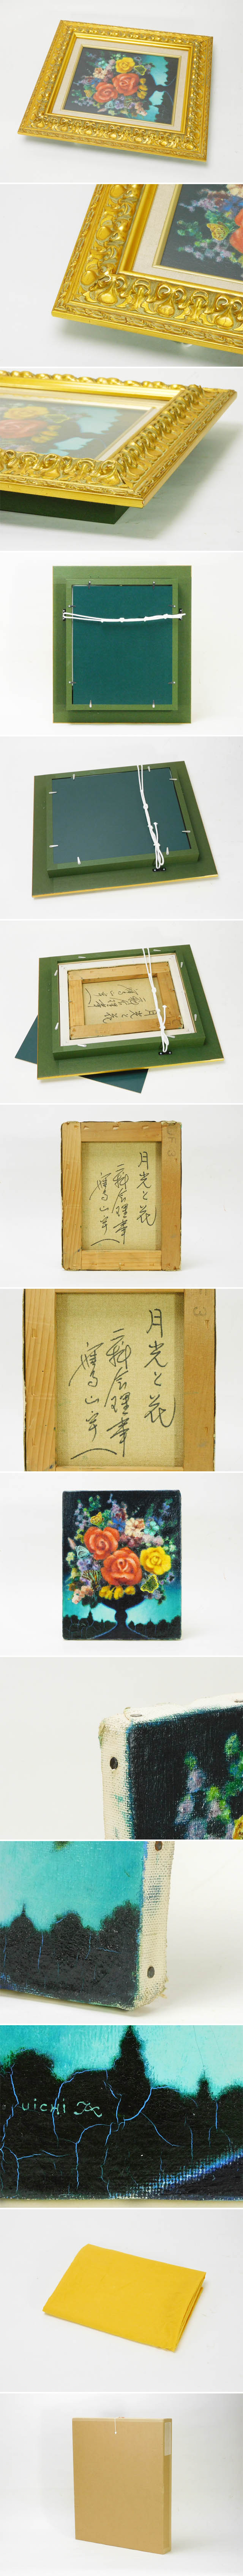 月光と花
二科会理事
鷹山宇一
月光と花
二科会理事
鷹山宇一
UICHI